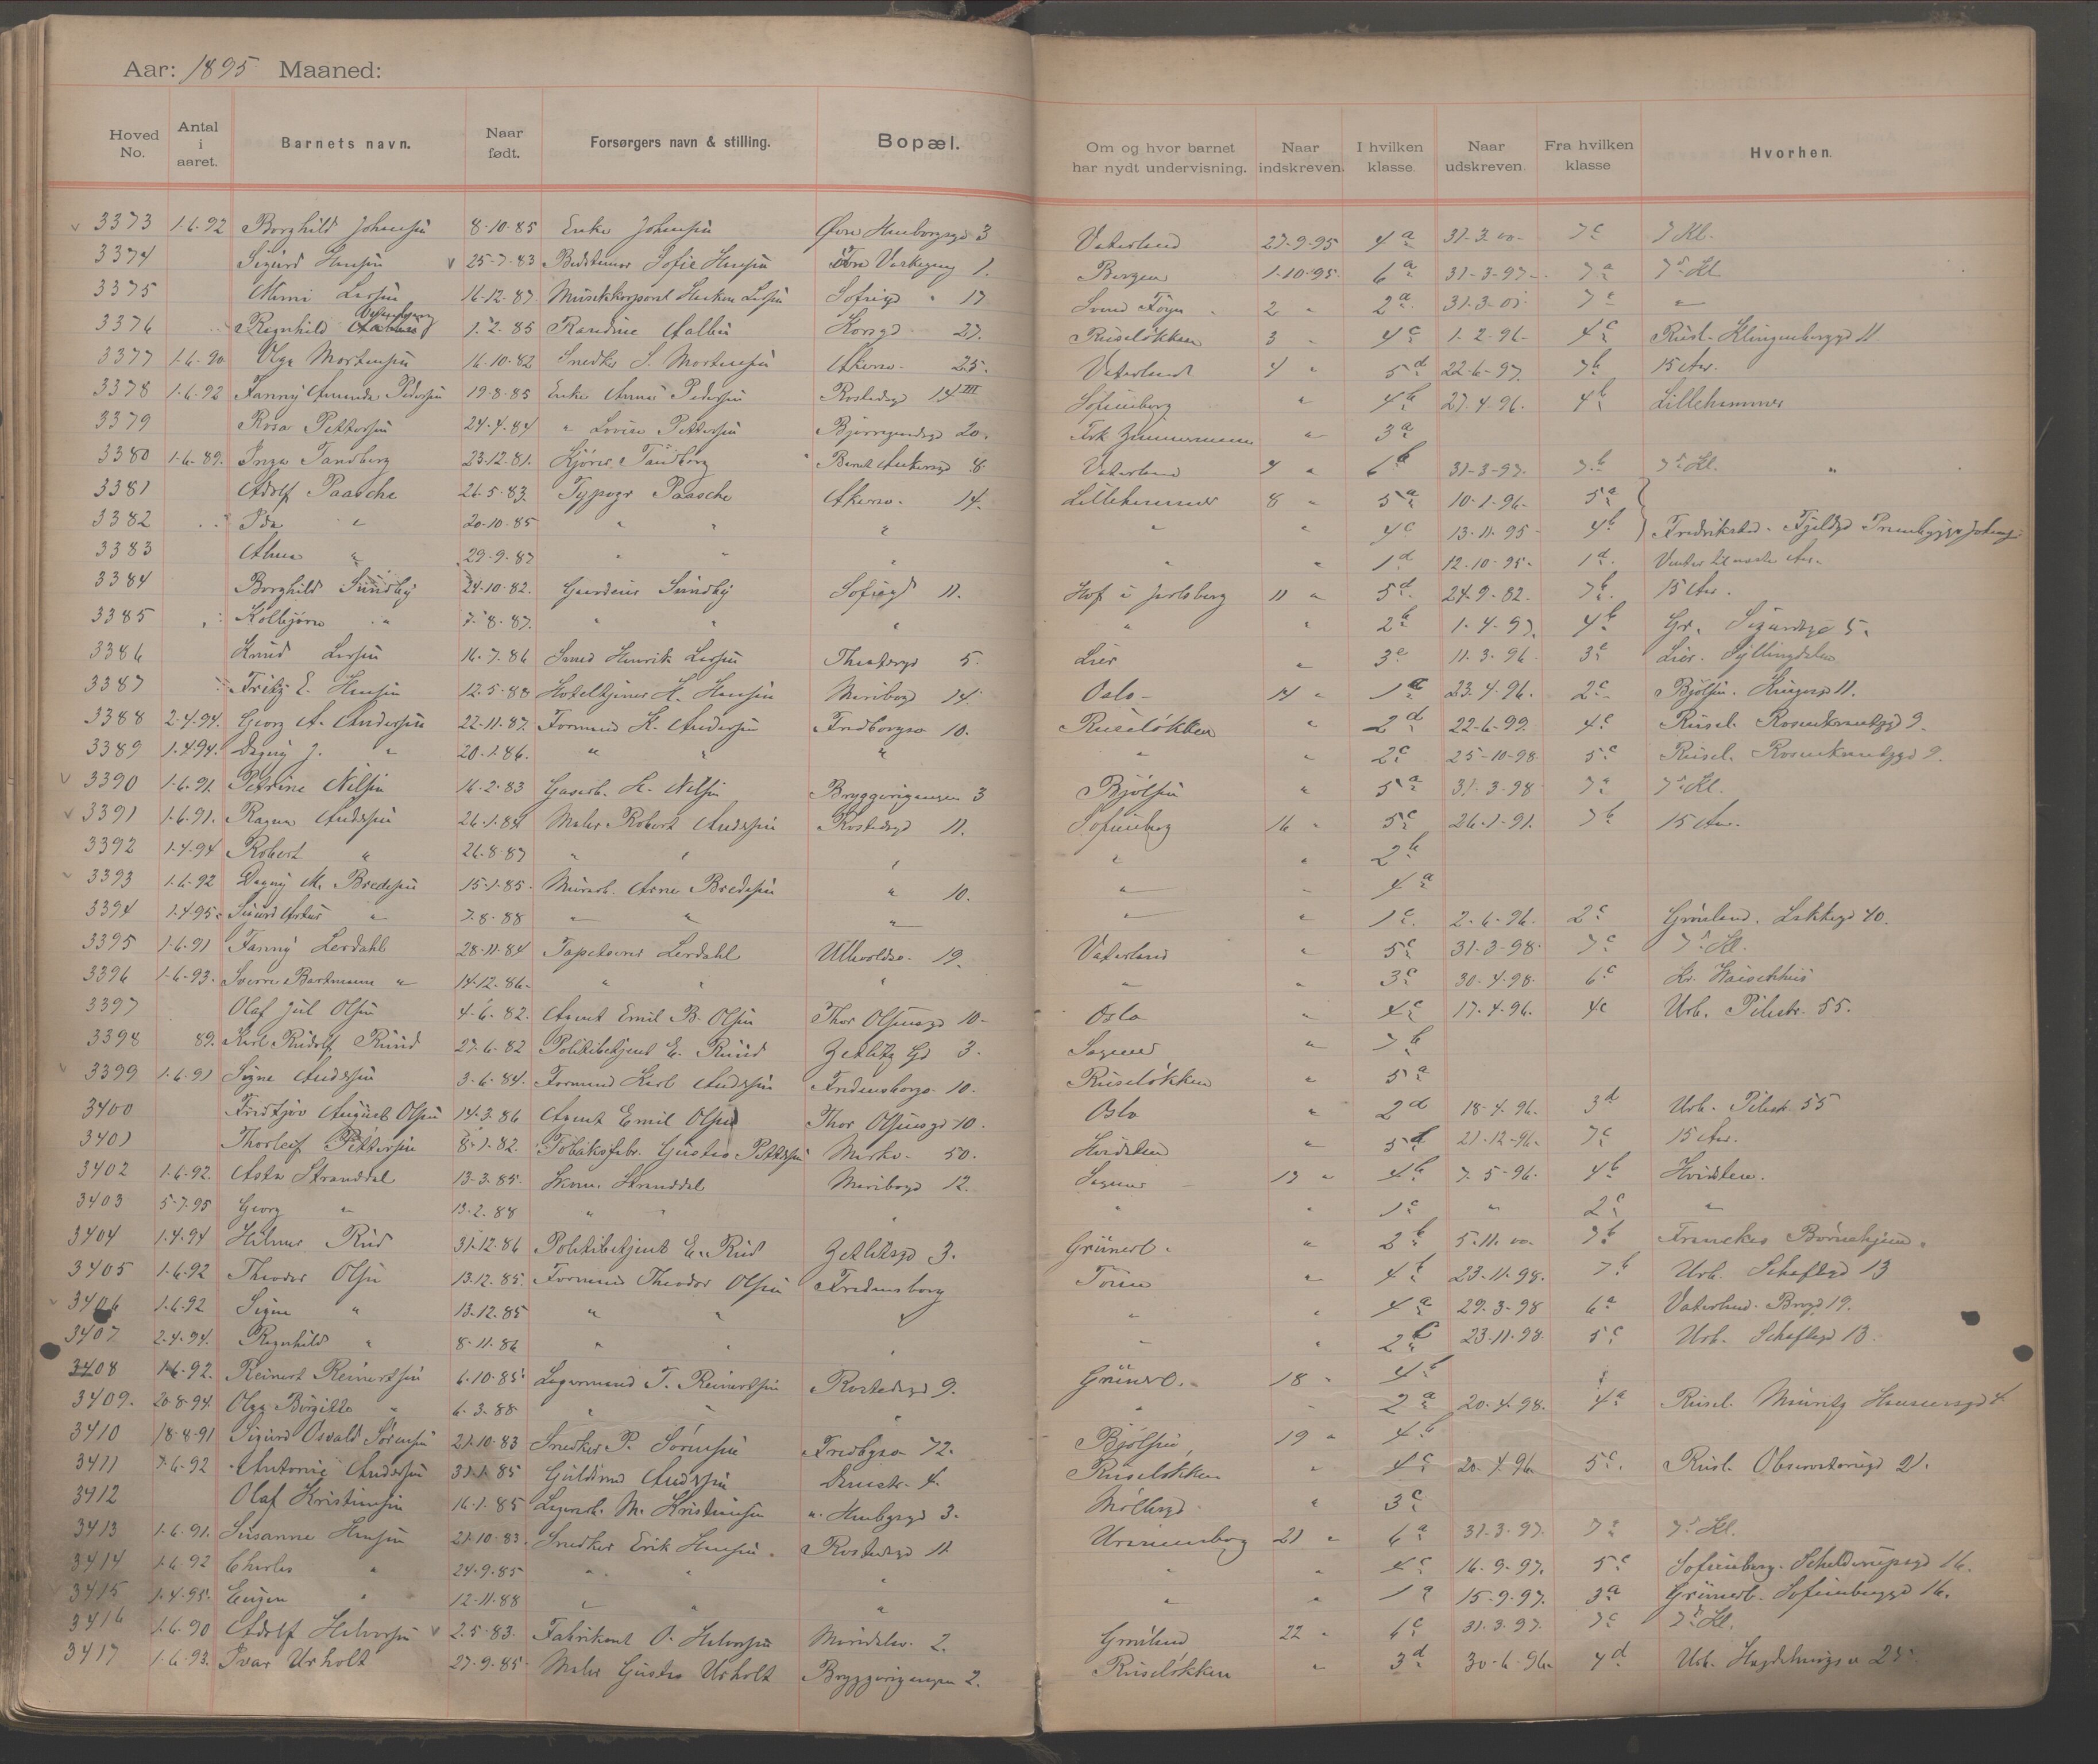 Aar: 1895 Maaned:
Hoved No. Antal i aaret. Barnets navn. Naar født. Forsørgers navn & stilling. Bopæl. Om og hvor barnet har nydt undervisning. Naar indskreven. I hvilken klasse. Naar udskreven. Fra hvilken klasse Hvorhen.
3373 1.6.92 Borghild Johnsen 8.10.85 Enke Johnsen 3 Vaterland 27.9.95 4a 31.3.00 7c 7 Kl.
3374 Sigurd Hansen 25.7.83 Bedstemor Sofie Hansen 1. Bergen 1.10.95 6a 31.3.97 7a 7de Kl
3375 Larsen 16.12.87 Musikkorporal Larsen Sofiegd 17 Svend Foyn 2 " 2a 31.3.01 7c "
3376 Ragnhild 1.2.85 Karsgd 27. Ruseløkken 3 " 4c 1.2.96 4c Rusl. Klingenberggd 11
3377 1.6.90 Olga Mortensen 16.10.82 Snedker S. Mortensen Akersv. 25. Vaterland 4 " 5d 22.6.97 7b 15 Aar.
3378 1.6.92 Fanny Amanda Pedersen 19.8.85 Enke Anna Pedersen Rostedsgd 14 III Sofienberg " 4b 27.4.96. 4b Lillehammer
3379 Rosa Pettersen 24.4.84 " Lovise Pettersen 20. Frk Zimmermann " 3a
3380 1.6.89. Inga Tandberg 23.12.81. Kjører Tandberg Bernt Ankersgd 8. Vaterland 4 " 6b 31.3.97. 7b 7de Kl. "
3381 Adolf Paasche 26.5.83. Typogr Paasche Akersv. 14. Lillehammer 8 " 5a 10.1.96. 5a
3382 Ida " 20.10.85 " " " " " 4c 13.11.95 4b Fredrikstad.
3383 " 29.9.87 " " " " " 1d 12.10.95. 1d. Venter til næste Aar.
3384 Borghild Sundby 24.10.82. Sundby Sofiegd 11. Hof i Jarlsberg 11 " 5d. 24.9.82. 7b 15 Aar.
3385 Kolbjørn " 7.8.87. " " " " " 2b 1.4.97. 4b Gr. Sigurdsgd 5.
3386 Knud Larsen 16.7.86 Smed Henrik Larsen Theatergd 5. Lier " 3c 11.3.96 3c Lier. Syllingdalen
3387 Fritz E. Hansen 12.5.88 Hoteltjener H. Hansen Maribogd 14. Oslo 14 " 1c 23.4.96. 2c Bjølsen. 11.
3388 2.4.94. Georg A. Andersen 22.11.87. Formand K. Andersen Fredborgv. 10. Ruseløkken " 2d 22.6.99. 4c Rusel. Rosenkrantzgd 9.
3389 1.4.94. Dagny J. " 20.1.86. " " " " " 2c 25.10.98 5c Rusel. Rosenkrantzgd 9.
3390 1.6.91. Petrine Nilsen 16.2.83 Gasarb. H. Nilsen Bryggerigangen 3 Bjølsen " 5a 31.3.98 7a 7de Kl.
3391 1.6.91. Ragna Andersen 26.1.84 Maler Robert Andersen Rostedsgd 11. Sofienberg 16 " 5c 26.1.91. 7b 15 Aar.
3392 1.4.94 Robert " 26.8.87 " " " " " 2b
3393 1.6.92 Dagny M. Bredesen 15.1.85. Murarb. Arne Bredesen " 10. " " 4a
3394 1.4.95. Sigurd Artur " 7.8.88 " " " " " 1c. 2.6.96. 2c Grønland. Lakkegd 40.
3395 1.6.91 Fanny Lerdahl 28.11.84 Tapetserer Lerdahl Ullevoldsv. 19. Vaterland " 5c 31.3.98 7c 7de Kl.
3396 1.6.93. Sverre Bartmann " 14.12.86. " " " " " 3c 30.4.98. 6c Kr. Waisenhus
3397 Olaf Jul Olsen 4.6.82. Agent Emil B. Olsen Thor Olsensgd 10. Oslo " 4c 17.4.96. 4c Urb. Pilestr. 55.
3398 89. Karl Rudolf Ruud 27.6.82 Politibetjent E. Ruud Zetlitz Gd 3. Sagene " 7b
3399 1.6.91 Signe Andersen 3.6.84. Formand Karl Andersen Fredensborgv. 10. Ruseløkken " 5a
3400 Fridtjov August Olsen 14.3.86 Agent Emil Olsen Thor Olsensgd 10. Oslo " 2d 18.4.96. 3d Urb. Pilestr. 55
3401 Thorleif Pettersen 8.1.82. Tobaksfabr. Gustav Pettersen Markv. 50. Hvidsten " 5d 21.12.96. 7c 15 Aar.
3402 1.6.92. Asta Stranddal 13.3.85. Stranddal Maribogd 12. Sagene 17 " 4b 7.5.96. 4b Hvidsten.
3403 5.7.95 Georg " 13.2.88 " " " " " 1c " 2c "
3404 1.4.94 Hilmar Rud 31.12.86 Politibetjent E. Rud Zetlitzgd 3. Grünerl. " 2b 5.11.00. 7b Franckes Børnehjem.
3405 1.6.92 Theodor Olsen 13.12.85. Formand Theodor Olsen Fredensborg Tøien " 4b 23.11.98. 7b Urb. Schaftgd 13
3406 1.6.92 Signe " 13.12.85 " " " " " 4a 29.3.98 6a Vaterland. Brogd 19.
3407 2.4.94. Ragnhild " 8.11.86 " " " " " 2c 23.11.98. 5c Urb. Schaftgd 13.
3408 1.6.92. Reinert Reinertsen 6.10.85 Lagermand T. Reinertsen Rostedsgd 9. Grünerl. 18 " 4b
3409. 20.8.94. Olga Borgitte " 6.3.88 " " " " " 2a 20.4.98. 4a Rusel. Mauritz Hansensgd 4
3410 18.8.91 Sigurd Osvald Sørensen 21.10.83 Snedker P. Sørensen Fredbgsv 72. Bjølsen, 19 " 4b
3411 7.6.92 Antonie Andersen 31.1.85 Guldsmed Andersen Damstr. 4. Ruseløkken " 4c 20.4.96. 5c. Rusl. Observatoriegd 21.
3412 Olaf Kristiansen 16.1.85 Lagerarb. M. Kristiansen 3. Møllergd " 3c
3413 1.6.91. Susanne Hansen 21.10.83. Snedker Erik Hansen. Rostedsgd 11 Uranienborg 21 " 6a 31.3.97. 7a 7de Kl.
3414 1.6.92 Charles " 24.9.85 " " " " " 4c 16.9.97. 5c Sofienberg. Schelderupsgd 16.
3415 1.4.95. Eugen " 12.11.88 " " " " " 1a 15.9.97. 3a Grünerl. Sofienberggd 16.
3416 1.6.90 Adolf Halvorsen 2.5.83. Fabrikant O. Halvorsen Maridalsv. 2. Grønland 22 " 6c 31.3.97. 7c 7de Kl.
3417 1.6.93. Ivar Urholt 27.9.85 Maler Gustav Urholt Bryggerigangen 2. Ruseløkken " 3d 30.6.96. 4d Urb.